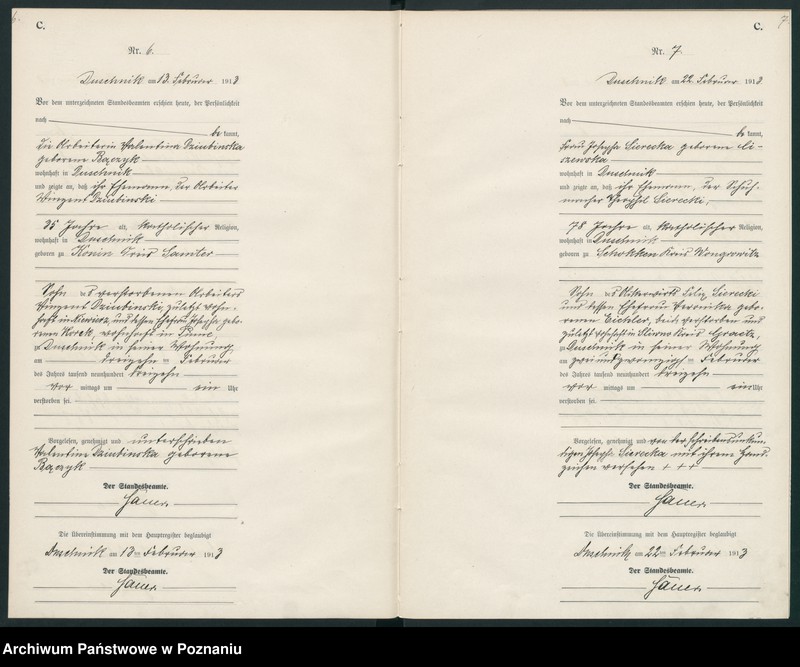 6.
C.
Nr. 6.
Duschnik am 13. Februar 1913
Vor dem unterzeichneten Standesbeamten erschien heute, der Persönlichkeit
nach
be kannt,
die Arbeiterin Valentina Dziubinska
geborene Rączyk
wohnhaft in Duschnik
und zeigte an, daß ihr Ehemann, der Arbeiter
Vinzent Dziubinski
35 Jahre alt, katholischer Religion,
wohnhaft in Duschnik
geboren zu Konin Kreis Samter
Sohn des verstorbenen Arbeiters
Vinzent Dziubinski, zuletzt wohn-
haft in und dessen Ehefrau Josepha gebo-
renen wohnhaft in
zu Duschnik in seiner Wohnung
am dreizehn ten Februar
des Jahres tausend neunhundert dreizehn
vor mittags um ein Uhr
verstorben sei.
Vorgelesen, genehmigt und unterschrieben
Valentine Dziubinska geborene
Rączyk
Der Standesbeamte.
Die Übereinstimmung mit dem Hauptregister beglaubigt
Duschnik am 13ten Februar 1913
Der Standesbeamte.
7
C.
Nr. 7
Duschnik am 22. Februar 1913
Vor dem unterzeichneten Standesbeamten erschien heute, der Persönlichkeit
nach
be kannt,
Frau Josepha Sierecka geborene Li-
szewska
wohnhaft in Duschnik
und zeigte an, daß ihr Ehemann, der Schuh-
macher Sierecki,
78 Jahre alt, katholischer Religion,
wohnhaft in Duschnik
geboren zu Schokken Kreis Wongrowitz
Sohn des Ackerwirts Felix Sierecki
und dessen Ehefrau Veronika gebo-
renen Eichler, beide verstorben und
zuletzt wohnhaft in Kreis Graetz,
zu Duschnik in seiner Wohnung
am zweiundzwanzigsten Februar
des Jahres tausend neunhundert dreizehn
vor mittags um ein Uhr
verstorben sei.
Vorgelesen, genehmigt und von der schreibensunkun-
digen Josepha Sierecka mit ihrem Hand-
zeichen versehen + + +
Der Standesbeamte.
Die Übereinstimmung mit dem Hauptregister beglaubigt
Duschnik am 22ten Februar 1913
Der Standesbeamte.
Archiwum Państwowe w Poznaniu